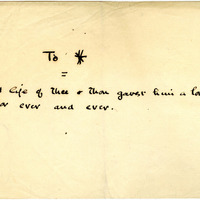 To *
=
life of thee & thou gavest him a lo
or ever and ever.